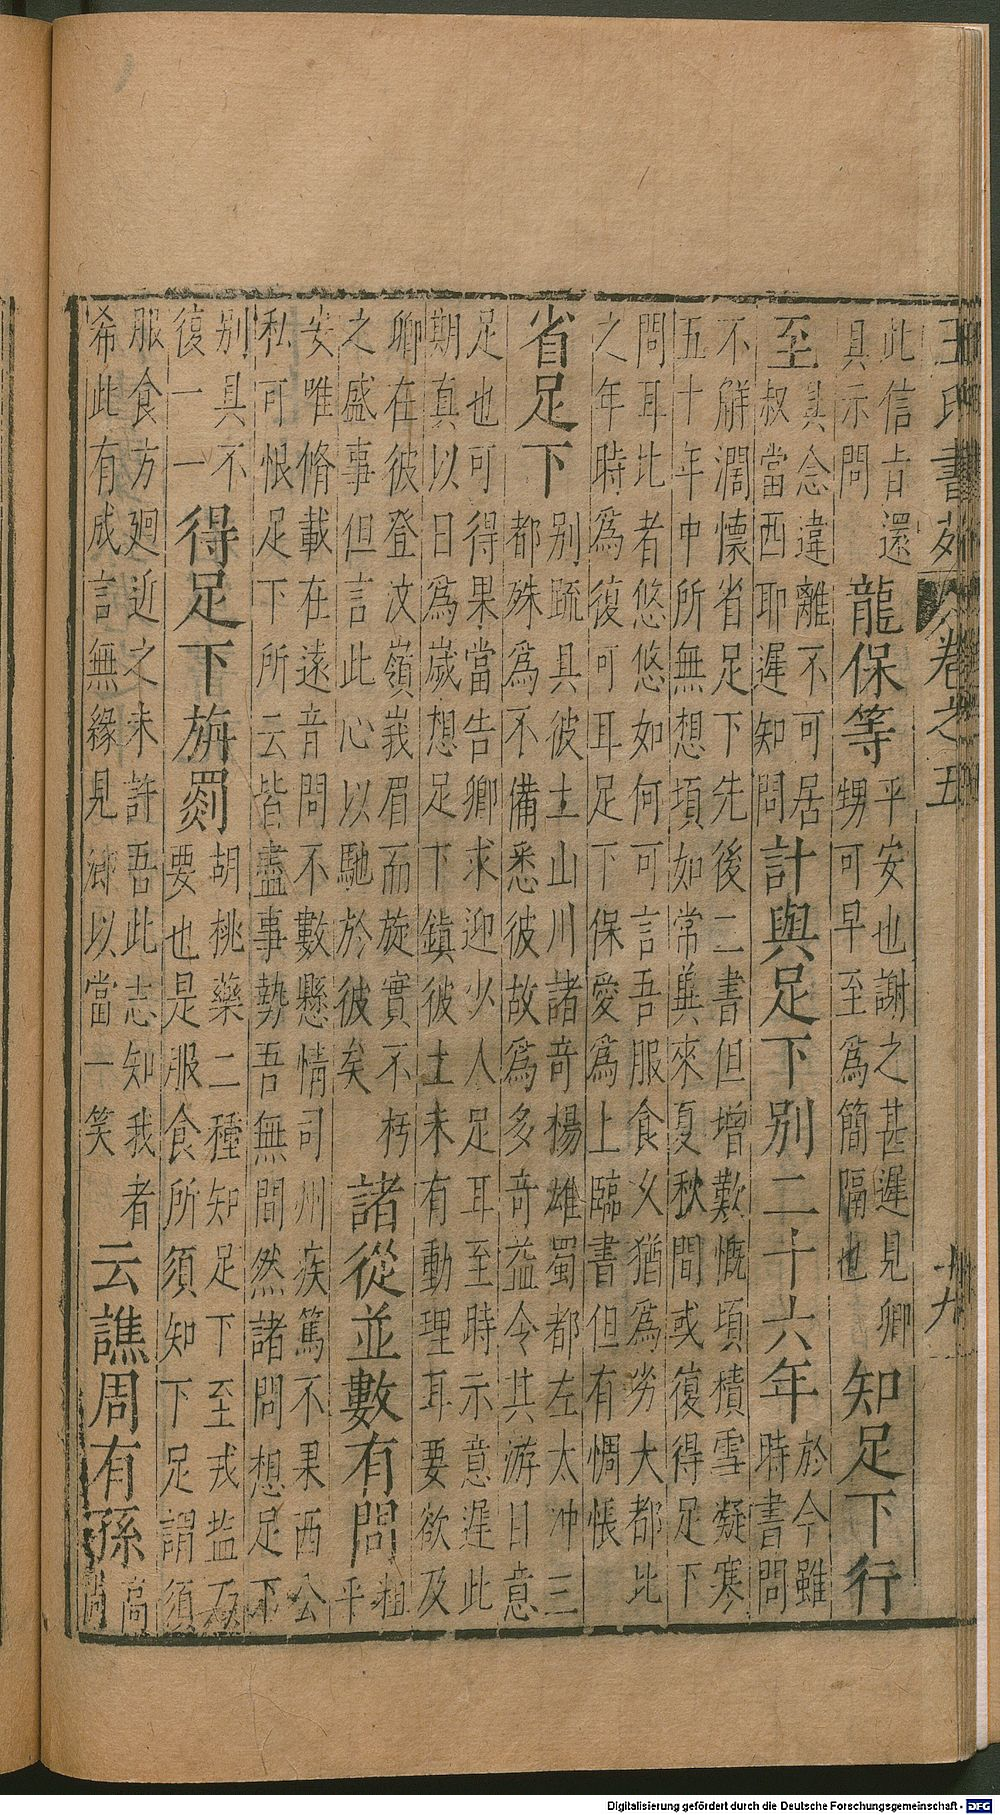 王氏書苑 卷之五 十九
此信旨還
具示問
龍保等
平安也謝之甚遲見卿
甥可早至爲簡隔也
知足下行
至
吾念違離不可居
叔當西耶遲知問
計與足下別二十六年
於今雖
時書問
不解濶懷省足下先後二書但增歎慨頃積雪凝寒
五十年中所無想頃如常兾來夏秋間或復得足下
問耳比者悠悠如何可言吾服食久猶爲劣大都比
之年時爲復可耳足下保愛爲上臨書但有惆悵
省足下
別䟽具彼土山川諸竒楊雄蜀都左太冲三
都殊爲不備悉彼故爲多竒益令其游日意
足也可得果當告卿求迎少人足耳至時示意遲此
期真以日爲歲想足下鎮彼土未有動理耳要欲及
卿在彼登汶嶺峩眉而旋實不朽
之盛事但言此心以馳於彼矣
諸從並數有問
粗
平
安唯脩載在遠音問不數懸情司州疾篤不果西公
私可恨足下所云皆盡事勢吾無間然諸問想足下
別具不
復一一
得足下旃罽
胡桃藥二種知足下至戎盐乃
要也是服食所須知下足謂須
服食方廻近之未許吾此志知我者
希此有成言無緣見卿以當一笑
云譙周有孫
高
尚
Digitalisierung gefördert durch die Deutsche Forschungsgemeinschaft - DFG